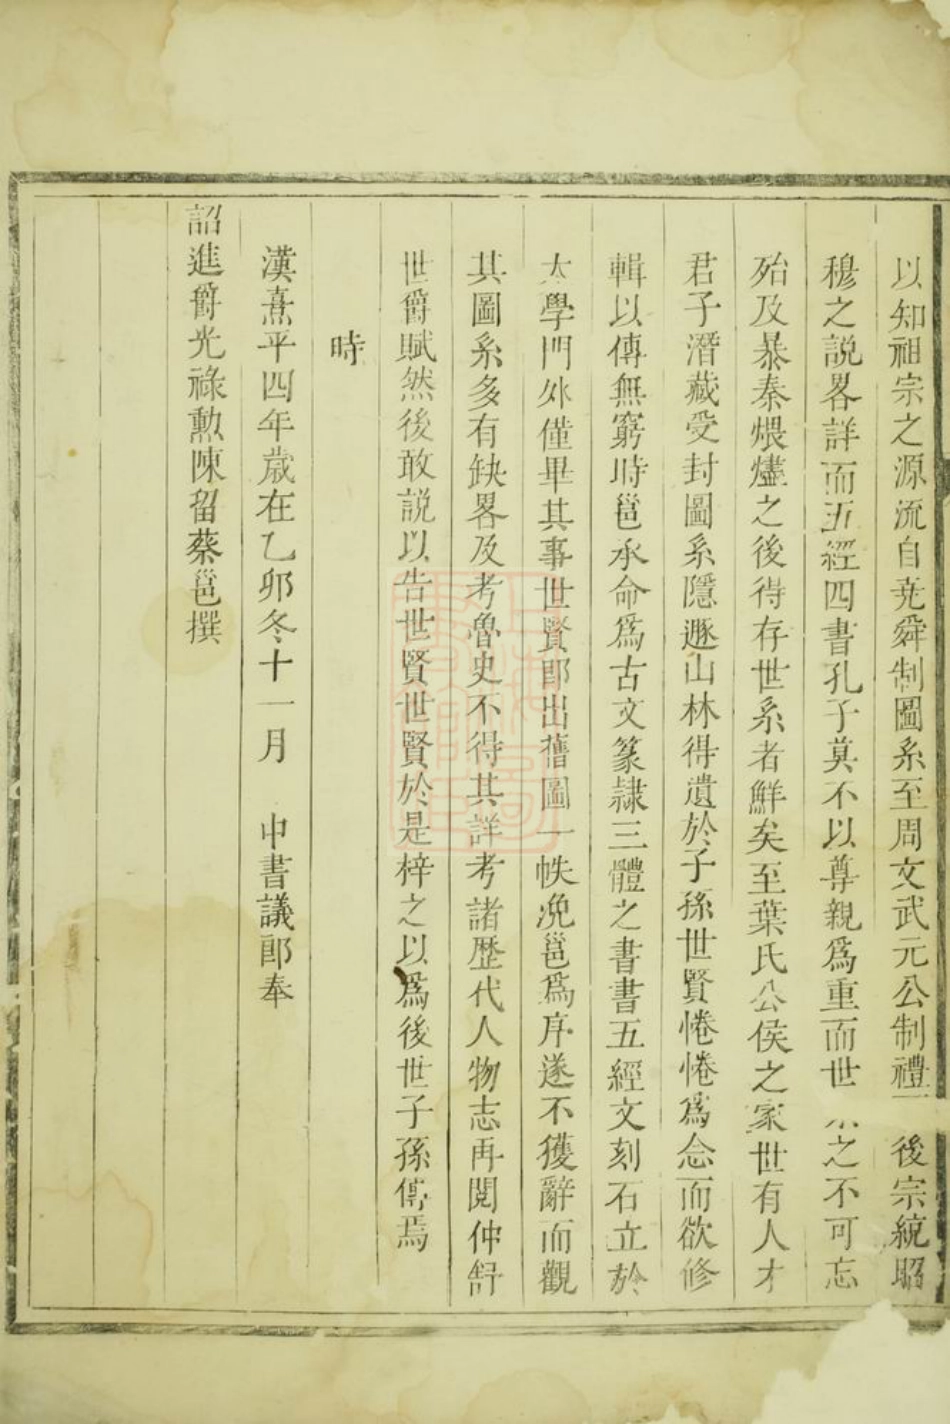 以知祖宗之源流自尭舜制圖系至周文武元公制禮後宗統昭
穆之説畧詳而五經四書孔子莫不以尊親爲重而世之不可忘
殆及暴秦煨燼之後得存世系者鮮矣至葉氏公侯之家世有人才
君子潛藏受封圖系隱遯山林得遺於子孫世賢惓惓爲念而欲修
輯以傳無窮時邕承命爲古文篆隷三體之書書五經文刻石立於
太學門外僅畢其事世賢郎出舊圖一帙凂邕爲序遂不獲辭而觀
其圖系多有缺畧及考魯史不得其詳考諸歷代人物志再閱仲舒
世爵賦然後敢説以告世賢世賢於是梓之以爲後世子孫傳焉
時
漢熹平四年歳在乙卯冬十一月 中書議郎奉
詔進爵光祿勲陳留蔡邕撰